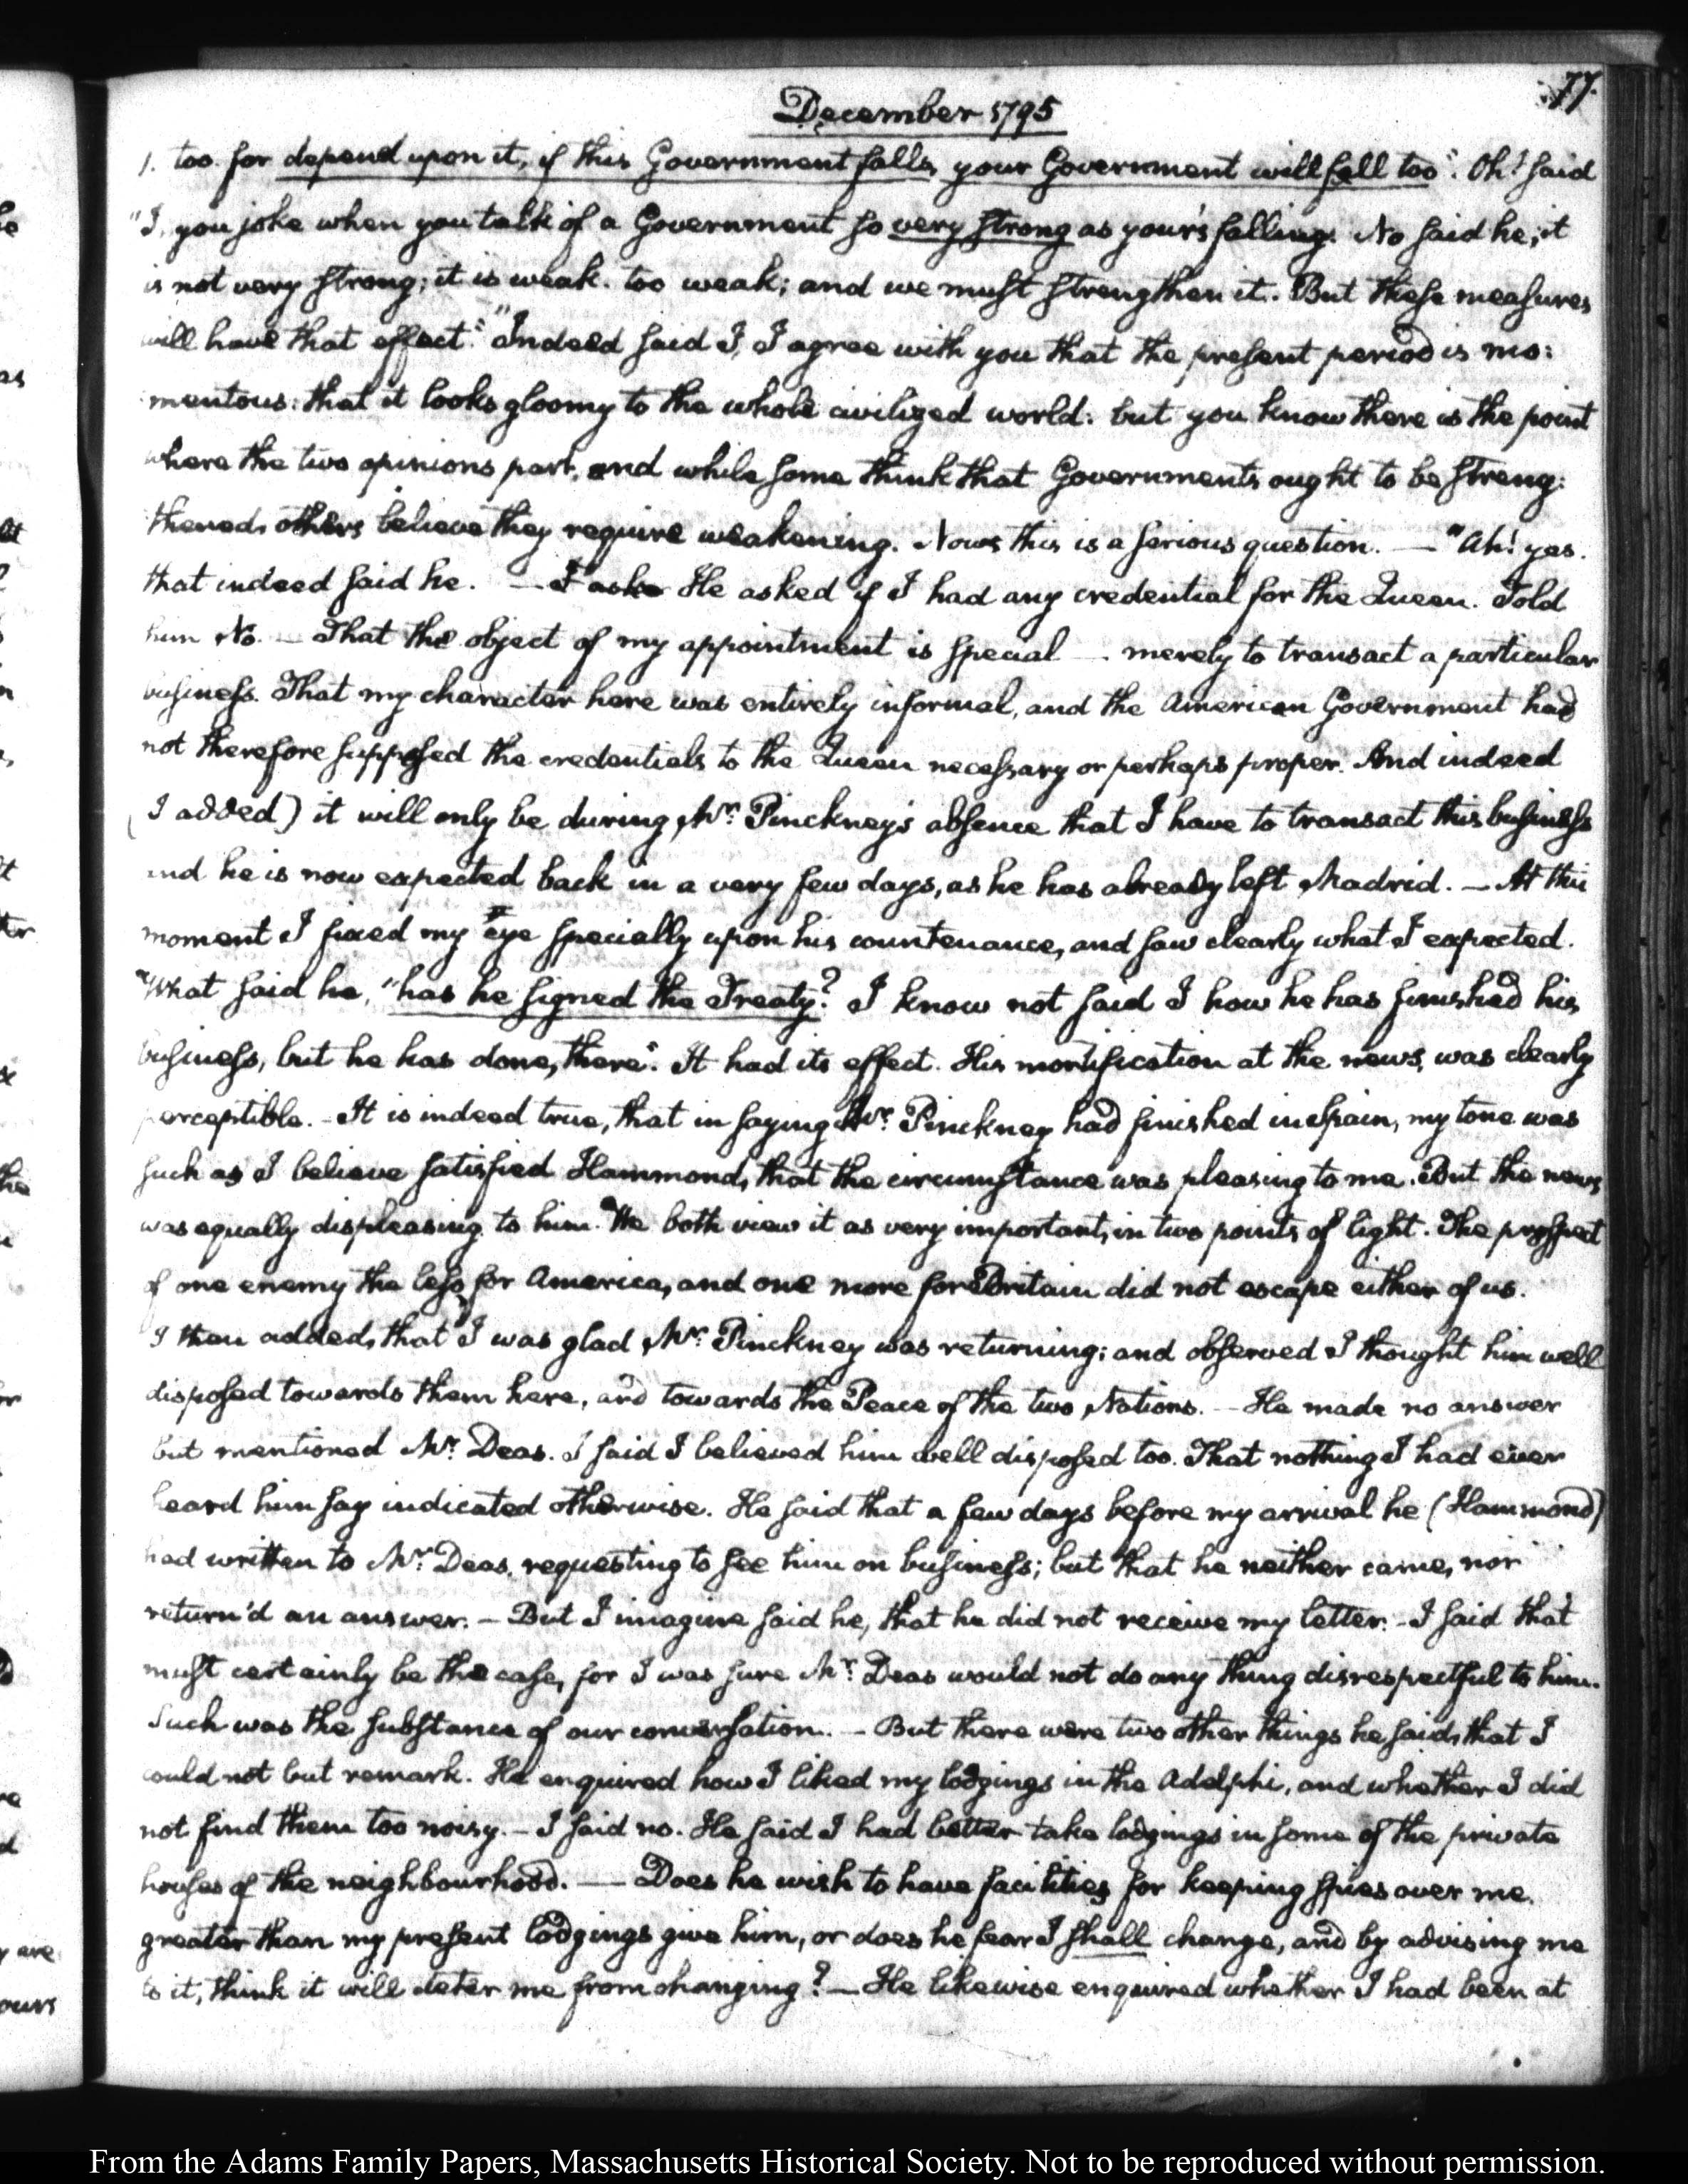 77.
December 1795
1. too. for depend upon it, if this Government falls, your Government will fall too". Oh! said
"I, you joke when you talk of a Government so very strong as your's falling. No said he, it
is not very strong; it is weak. too weak; and we must strengthen it. But these measures
will have that effect." "Indeed said I, I agree with you that the present period is mo:
mentous: that it looks gloomy to the whole civilized world: but you know there is the point
where the two opinions part, and while some think that Governments ought to be streng:
thened, others believe they require weakening. Now this is a serious question. — "Ah! yes.
that indeed said he. — I aske He asked if I had any credential for the Queen. Told
him No. — That the object of my appointment is special —. merely to transact a particular
business. That my character here was entirely informal, and the American Government had
not therefore supposed the credentials to the Queen necessary or perhaps proper. And indeed
(I added) it will only be during Mr. Pinckney's absence that I have to transact this business
and he is now expected back in a very few days, as he has already left Madrid. — At this
moment I fixed my eye specially upon his countenance, and saw clearly what I expected.
"What said he, "has he signed the Treaty? I know not said I how he has finished his
business, but he has done, there". It had its effect. His mortification at the news, was clearly
perceptible. - It is indeed true, that in saying Mr. Pinckney had finished in Spain, my tone was
such as I believe satisfied Hammond, that the circumstance was pleasing to me. But the news
was equally displeasing to him. We both view it as very important, in two points of light. The prospect
of one enemy the less for America, and one more for Britain did not escape either of us.
I then added, that I was glad Mr. Pinckney was returning; and observed I thought him well
disposed towards them here, and towards the Peace of the two Nations. — He made no answer
but mentioned Mr. Deas. I said I believed him well disposed too. That nothing I had ever
heard him say indicated otherwise. He said that a few days before my arrival he (Hammond)
had written to Mr. Deas, requesting to see him on business; but that he neither came, nor
return'd an answer. — But I imagine said he, that he did not receive my letter. - I said that
must certainly be the case, for I was sure Mr. Deas would not do any thing disrespectful to him.
Such was the substance of our conversation. — But there were two other things he said, that I
could not but remark. He enquired how I liked my lodgings in the Adelphi, and whether I did
not find them too noisy. — I said no. He said I had better take lodgings in some of the private
houses of the neighbourhood. —— Does he wish to have facilities for keeping spies over me,
greater than my present lodgings give him, or does he fear I shall change, and by advising me
to it, think it will deter me from changing? — He likewise enquired whether I had been at
From the Adams Family Papers, Massachusetts Historical Society. Not to be reproduced without permission.